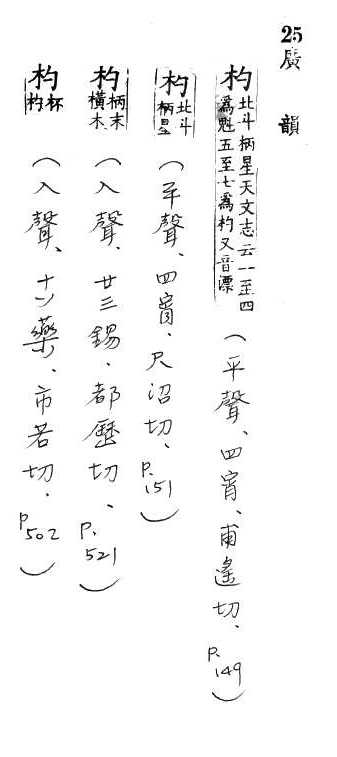 25 廣韻
杓 北斗柄星天文志云一至四爲魁五至七爲杓又音漂(平聲、四宵、甫遙切、P.149)
杓 北斗柄星(平聲、四宵、尺沼切、P.151)
杓 柄末橫木(入聲、廿三錫、都歷切、P.521)
杓 杯杓(入聲、十八藥、市若切、P.502)